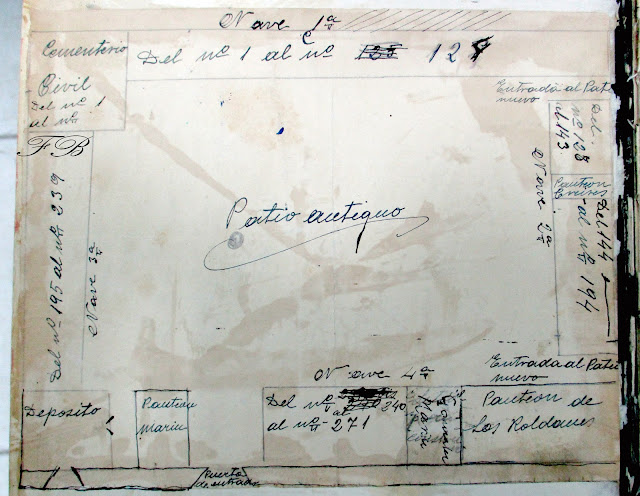 Nave 1ª
Cementerio
Civil
Del nº 1
al nº
Del nº 1 al nº 128 127
Entrada al Patio
nuevo
Del
nº 128
al 143
Panteon
Del 144
al nº 194
Nave 2ª
F B
Del nº 195 al nº 239
Nave 3ª
Patio antiguo
Nave 4ª
Entrada al Patio
nuevo
Deposito
Panteon
Marin
Del nº 240
al nº 271
Panteon
Marin
Panteon de
Los Roldanes
Puerta
de entrada